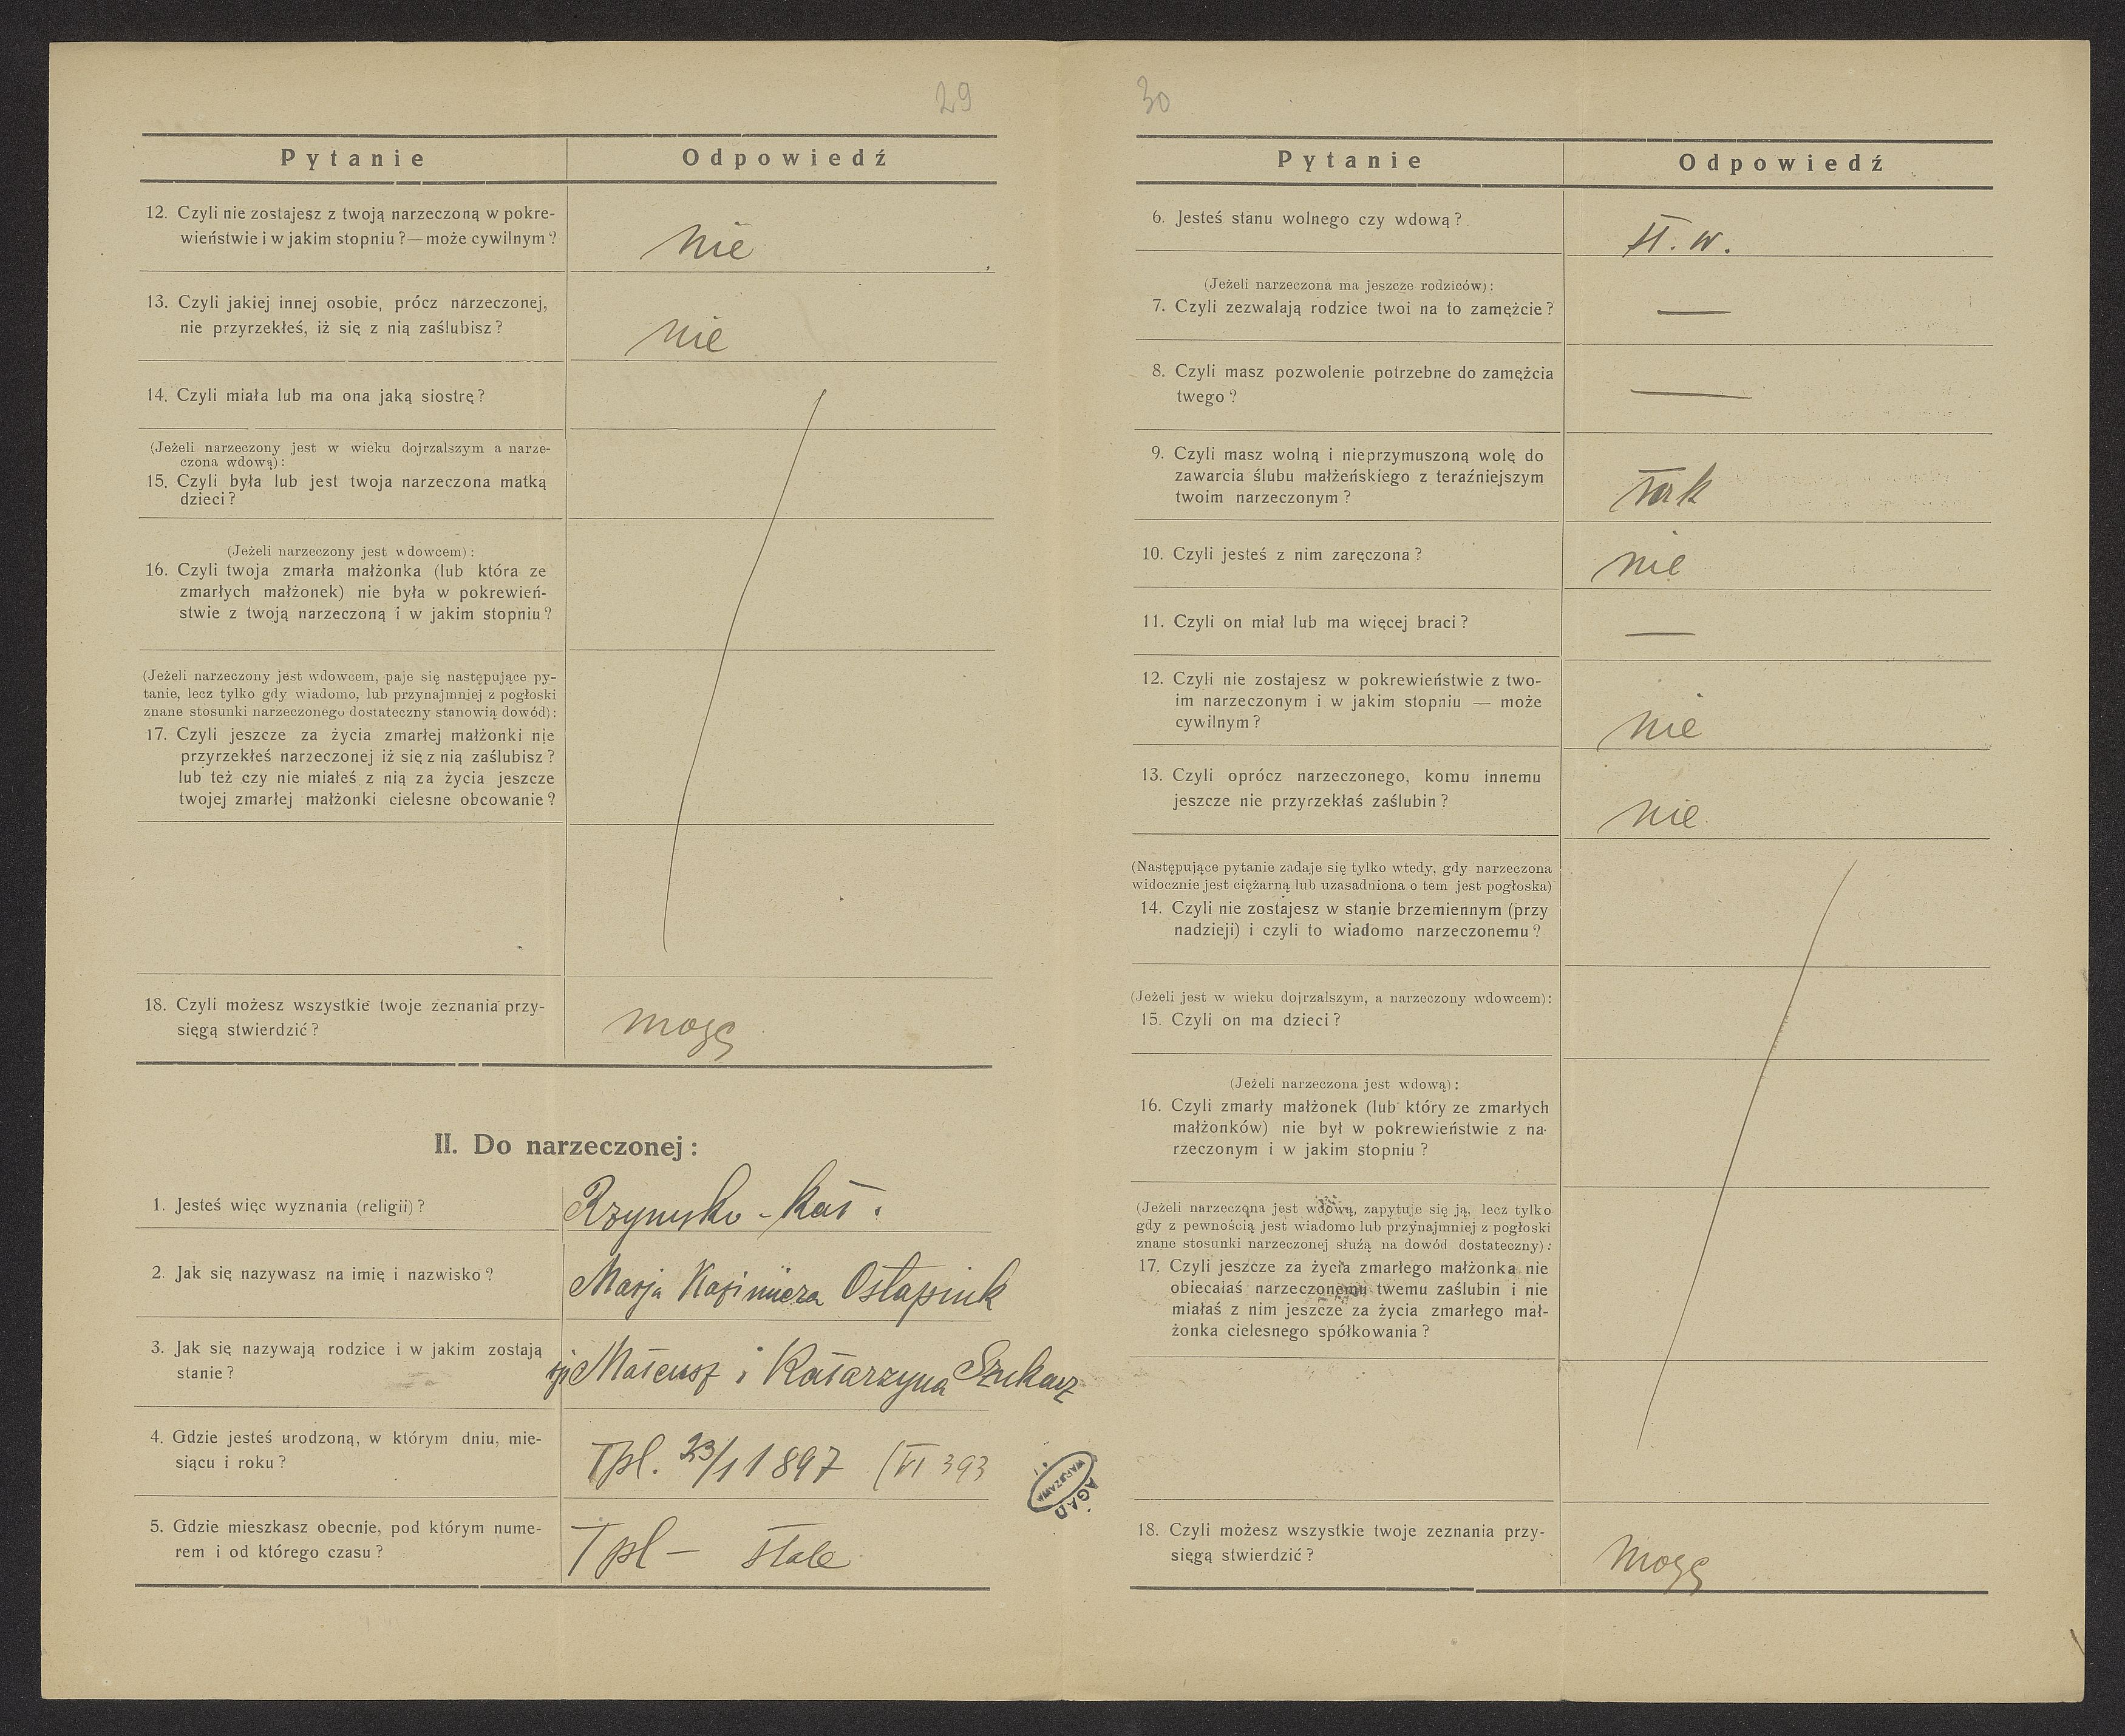 29
Pytanie Odpowiedź
12. Czyli nie zostajesz z twoją narzeczoną w pokre-
wieństwie i w jakim stopniu?—może cywilnym?
nie
13. Czyli jakiej innej osobie, prócz narzeczonej,
nie przyrzekłeś, iż się z nią zaślubisz?
nie
14. Czyli miała lub ma ona jaką siostrę?
(Jeżeli narzeczony jest w wieku dojrzalszym a narze-
czona wdową):
15. Czyli była lub jest twoja narzeczona matką
dzieci?
(Jeżeli narzeczony jest wdowcem):
16. Czyli twoja zmarła małżonka (lub która ze
zmarłych małżonek) nie była w pokrewień-
stwie z twoją narzeczoną i w jakim stopniu?
(Jeżeli narzeczony jest wdowcem, paje się następujące py-
tanie, lecz tylko gdy wiadomo, lub przynajmniej z pogłoski
znane stosunki narzeczonego dostateczny stanowią dowód):
17. Czyli jeszcze za życia zmarłej małżonki nie
przyrzekłeś narzeczonej iż się z nią zaślubisz?
lub też czy nie miałeś z nią za życia jeszcze
twojej zmarłej małżonki cielesne obcowanie?
18. Czyli możesz wszystkie twoje zeznania przy-
sięgą stwierdzić?
mogę
II. Do narzeczonej:
1. Jesteś więc wyznania (religii)?
Rzymsko-kat.
2. Jak się nazywasz na imię i nazwisko?
Marja Kazimiera Ostapiuk
3. Jak się nazywają rodzice i w jakim zostają
stanie?
Mateusz i Katarzyna Szukasz
4. Gdzie jesteś urodzoną, w którym dniu, mie-
siącu i roku?
Tpl. 23/1 1897 (VI 393
5. Gdzie mieszkasz obecnie, pod którym nume-
rem i od którego czasu?
Tpl — stale
AGAD
WARSZAWA
30
Pytanie Odpowiedź
6. Jesteś stanu wolnego czy wdową?
st. w.
(Jeżeli narzeczona ma jeszcze rodziców):
7. Czyli zezwalają rodzice twoi na to zamężcie?
—
8. Czyli masz pozwolenie potrzebne do zamężcia
twego?
—
9. Czyli masz wolną i nieprzymuszoną wolę do
zawarcia ślubu małżeńskiego z teraźniejszym
twoim narzeczonym?
tak
10. Czyli jesteś z nim zaręczona?
nie
11. Czyli on miał lub ma więcej braci?
—
12. Czyli nie zostajesz w pokrewieństwie z two-
im narzeczonym i w jakim stopniu — może
cywilnym?
nie
13. Czyli oprócz narzeczonego, komu innemu
jeszcze nie przyrzekłaś zaślubin?
nie
(Następujące pytanie zadaje się tylko wtedy, gdy narzeczona
widocznie jest ciężarną lub uzasadniona o tem jest pogłoska)
14. Czyli nie zostajesz w stanie brzemiennym (przy
nadzieji) i czyli to wiadomo narzeczonemu?
(Jeżeli jest w wieku dojrzalszym, a narzeczony wdowcem):
15. Czyli on ma dzieci?
(Jeżeli narzeczona jest wdową):
16. Czyli zmarły małżonek (lub który ze zmarłych
małżonków) nie był w pokrewieństwie z na-
rzeczonym i w jakim stopniu?
(Jeżeli narzeczona jest wdową, zapytuje się ją, lecz tylko
gdy z pewnością jest wiadomo lub przynajmniej z pogłoski
znane stosunki narzeczonej służą na dowód dostateczny):
17. Czyli jeszcze za życia zmarłego małżonka nie
obiecałaś narzeczonemu twemu zaślubin i nie
miałaś z nim jeszcze za życia zmarłego mał-
żonka cielesnego spółkowania?
18. Czyli możesz wszystkie twoje zeznania przy-
sięgą stwierdzić?
mogę